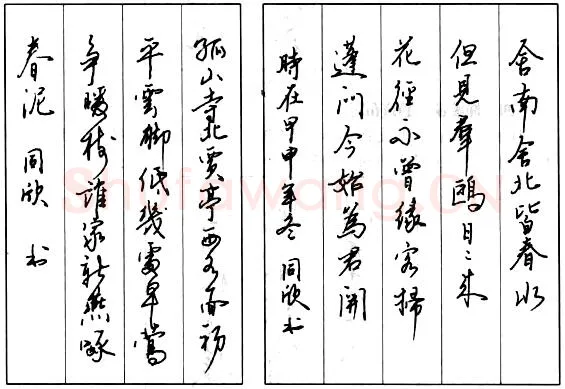 舍南舍北皆春水
但見羣鷗日〻来
花徑不曾緣客掃
蓬门今始為君開
時在甲申年冬 同欣书
孤山寺北贾亭西水面初
平雲脚低幾處早鶯
争暖树誰家新燕啄
春泥 同欣 书
Shufawang.CN